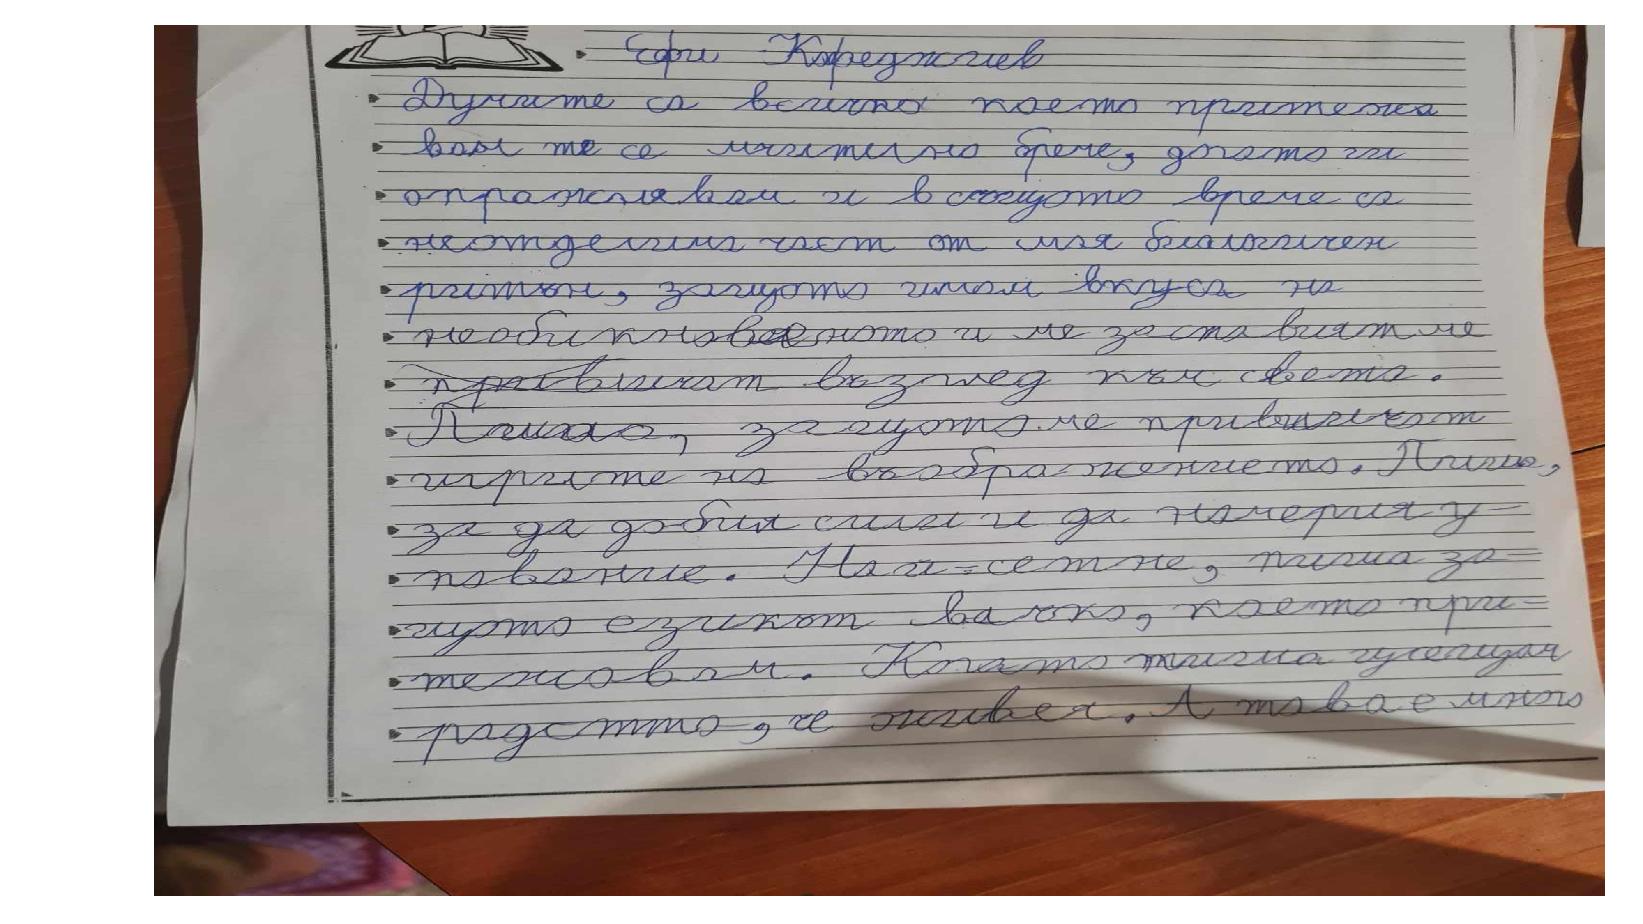 Ефи Кюреджиев
Думите са всичко което притежа
вам те се мъчително бреме, догато ги
опражнявам и в същото време са
неотделима част от моя биологичен
ритъм, защото имат вкуса на
необикновеното и ме заставят ме
възглед към света.
Пиша, защото ме привличат
игрите на въображението. Пиша,
за да добия сили и да намеря у-
пование. Най-сетне, пиша за-
щото езикът всичко, което при-
тежавам. Когато пиша усещам
радостта, че живея. А това е много